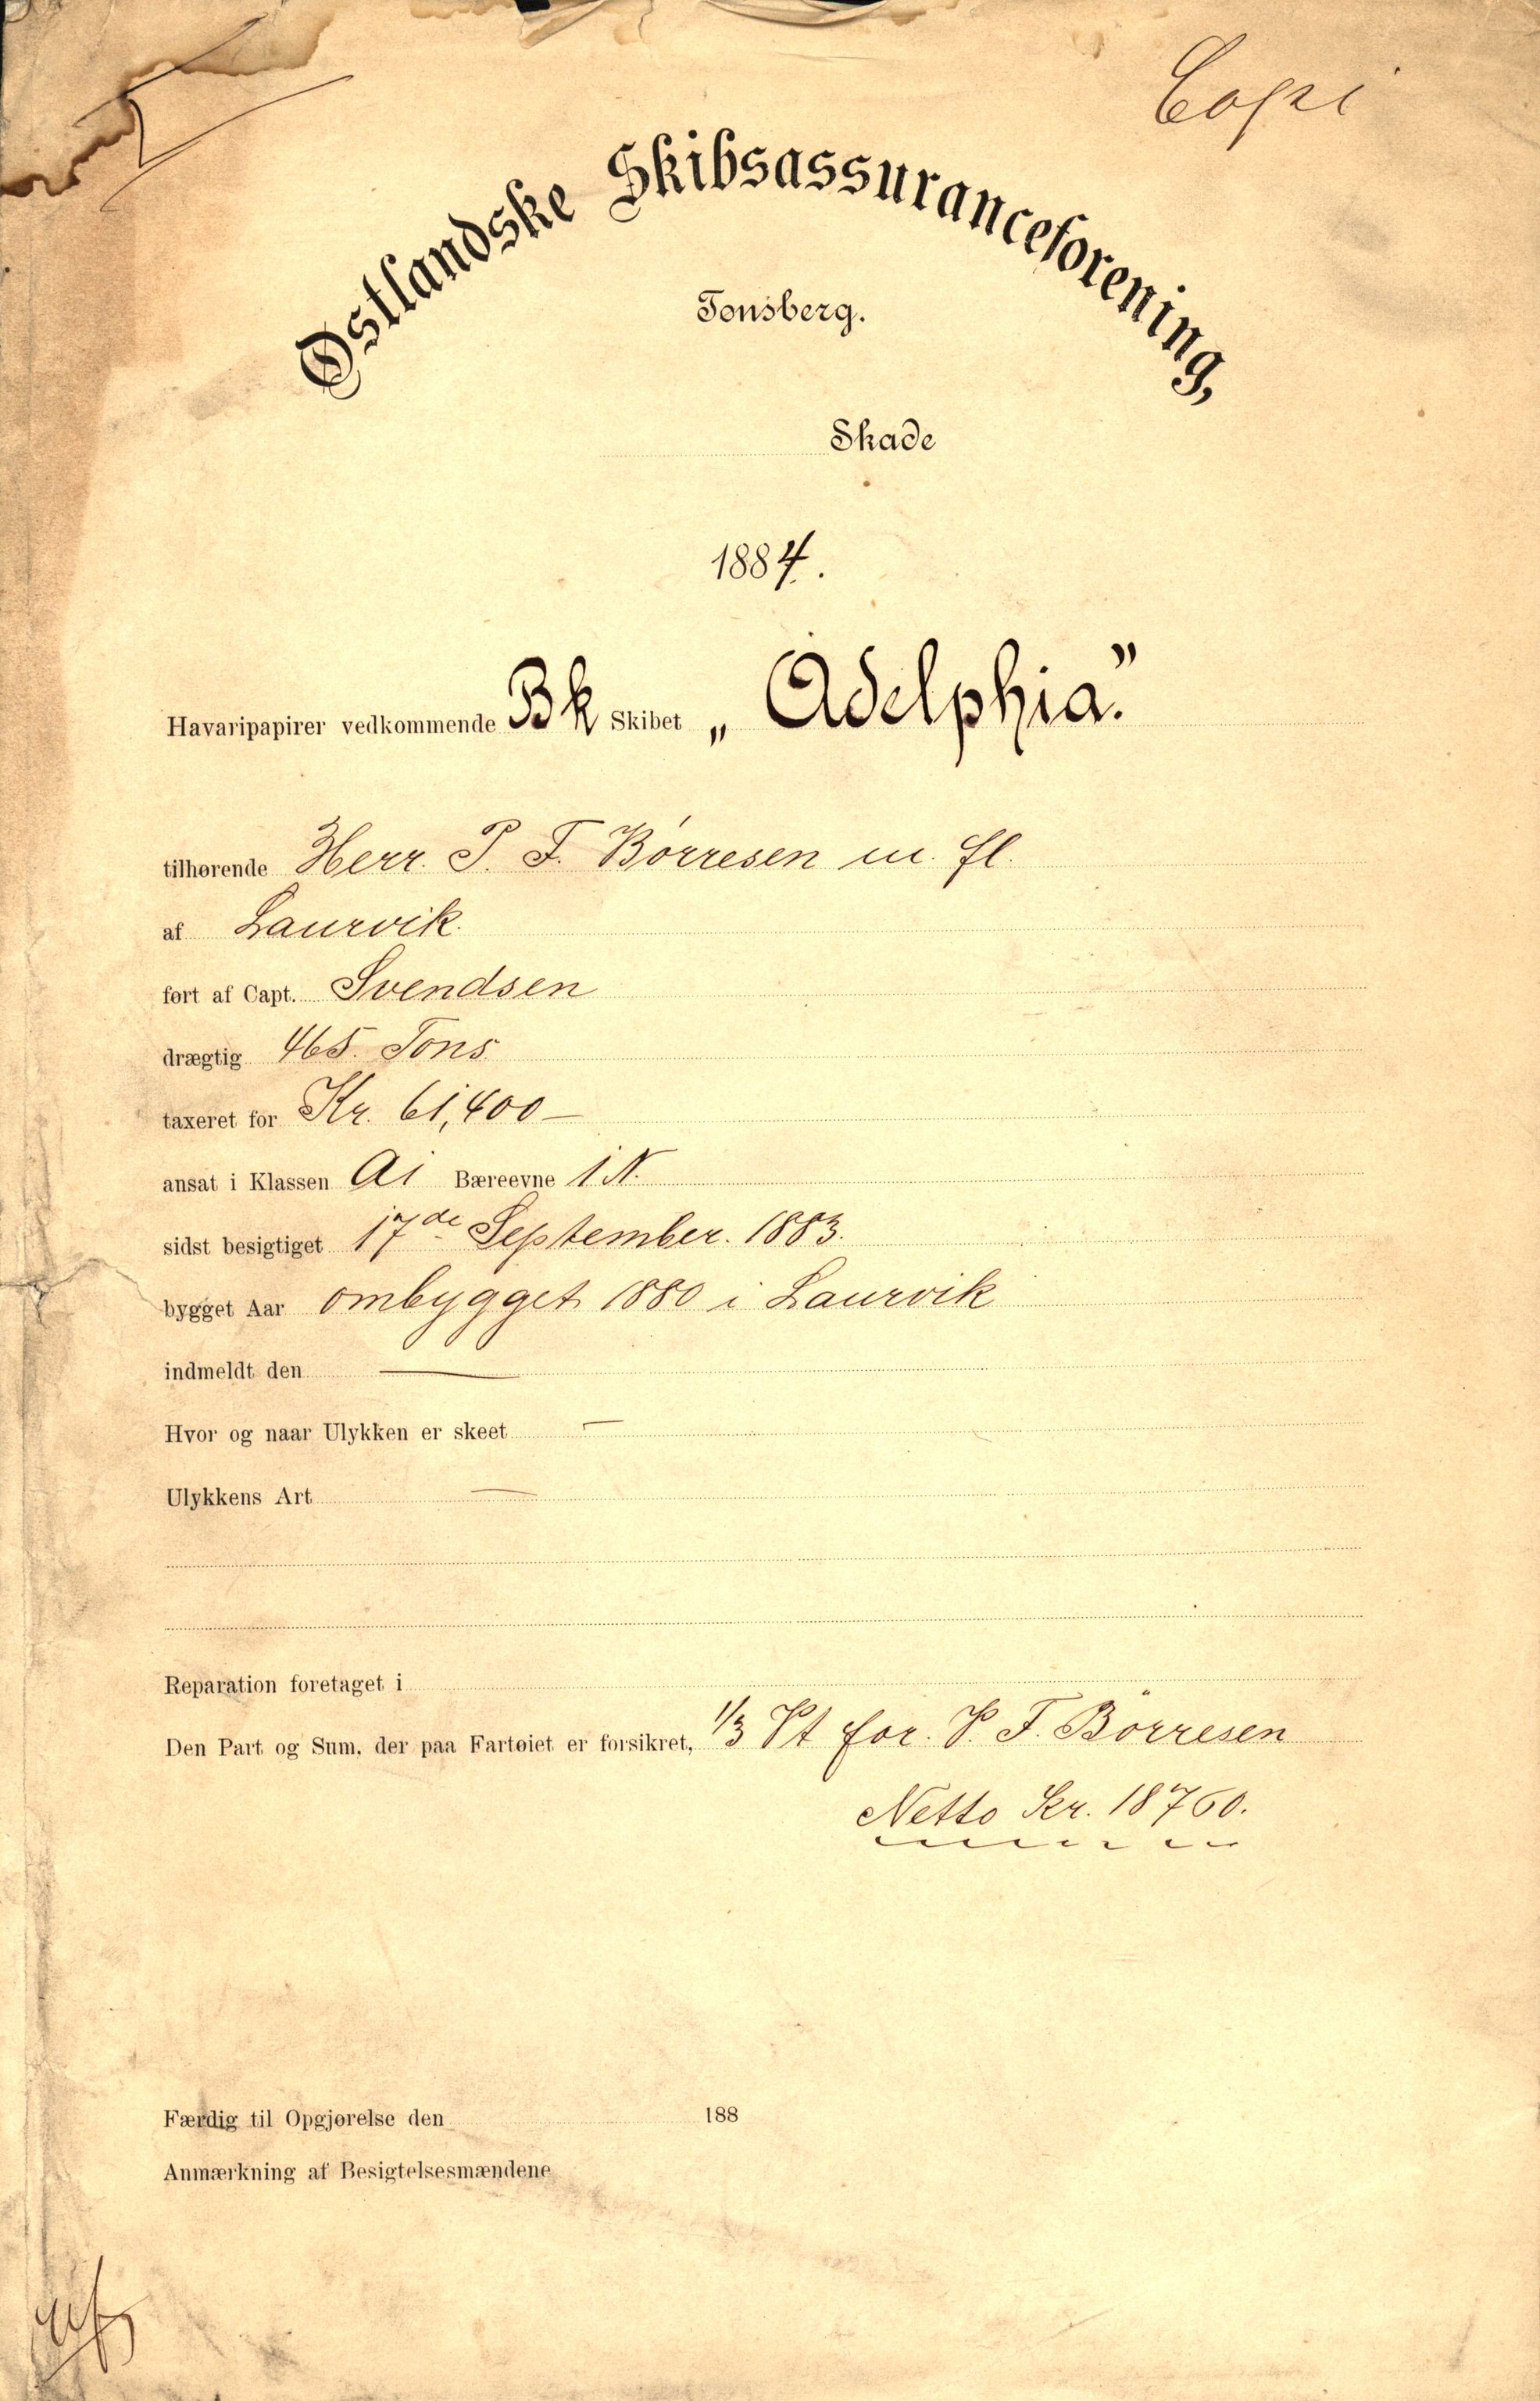 Copi
Østlandske Skibsassuranceforening,
Tonsberg.
Skade
1884.
Havaripapirer vedkommende Bk Skibet „Adelphia."
tilhørende Herr. P. F. Børresen m. fl.
af Laurvik.
ført af Capt. Svendsen
drægtig 465. Tons
taxeret for Kr. 61,400—
ansat i Klassen A1 Bæreevne 1 N.
sidst besigtiget 17de September. 1883.
bygget Aar ombygget 1880 i Laurvik
indmeldt den —
Hvor og naar Ulykken er skeet —
Ulykkens Art —
Reparation foretaget i
Den Part og Sum, der paa Fartøiet er forsikret, 1/3 Pt for. P. F. Börresen
Netto Kr. 18760.
Færdig til Opgjørelse den 188
Anmærkning af Besigtelsesmændene